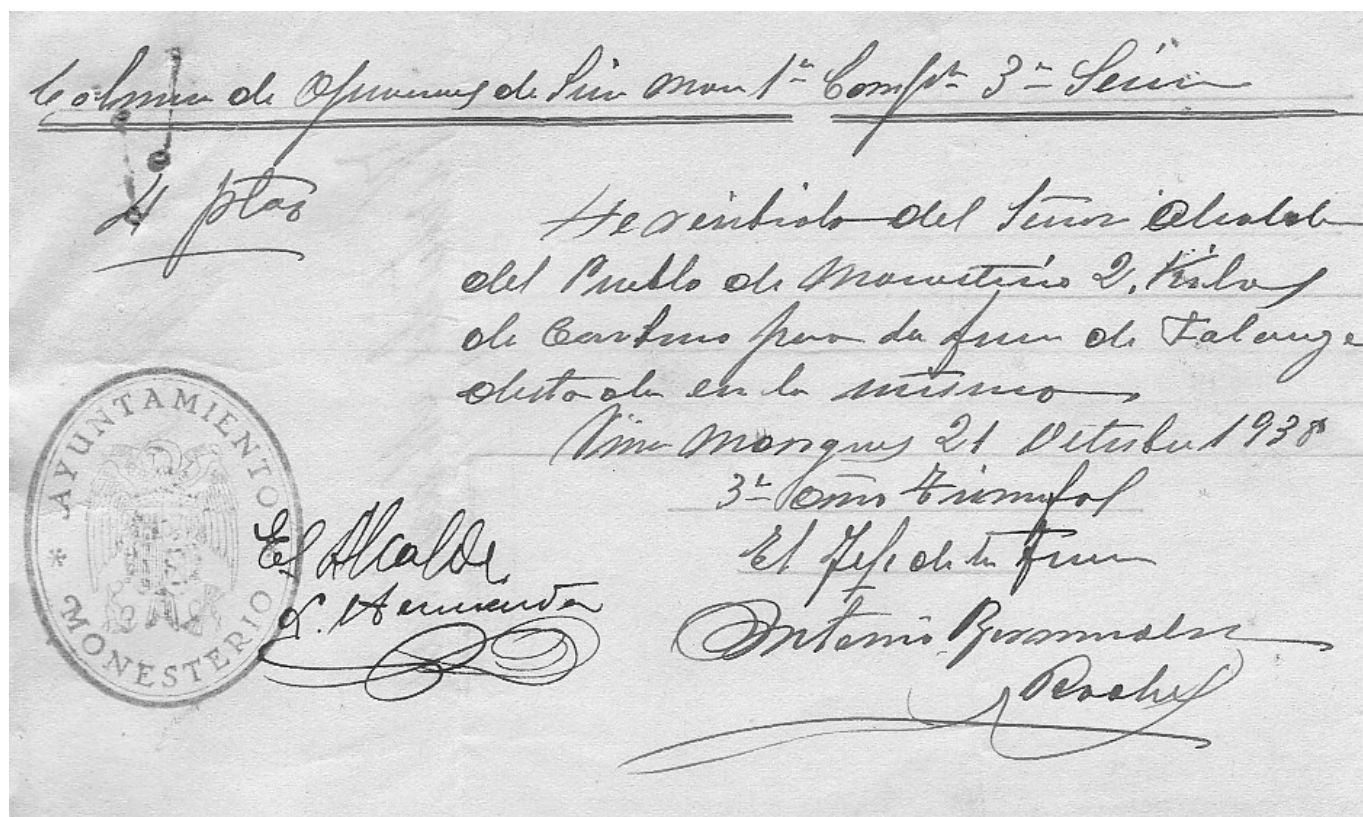 Columna de Operaciones de Sierra Morena 1ª Compª 3ª Sección
4 ptas
He recibido del Señor Alcalde
del Pueblo de Monesterio 2, Kilos
de Carburo para la fuerza de Falange
destacada en la misma
Viña Marques 21 Octubre 1938
3er año triunfal
El Jefe de la fuerza
Antonio Bermudez
El Alcalde
L. Hernández
AYUNTAMIENTO
* MONESTERIO *